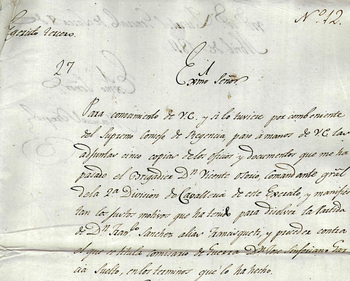 Nº 12.
Exercito tercero.
27
Exmo Señor
Para conocimiento de V.E. y si lo tuviere por combeniente
del Supremo Consejo de Regencia, paso á manos de V.E. las
adjuntas cinco copias de los oficios y documentos que me ha
pasado el Brigadier Dn Vicente Osorio, comandante gral
de la 2ª Division de Cavalleria de este Exercito, y manifies
tan los justos motivos que ha tenido para disolver la Partida
de Dn Franco Sanchez alias Francisquete, y proceder contra
el que se titula comisario de Guerra Dn Luis
cia Suelto, en los terminos que lo ha hecho.